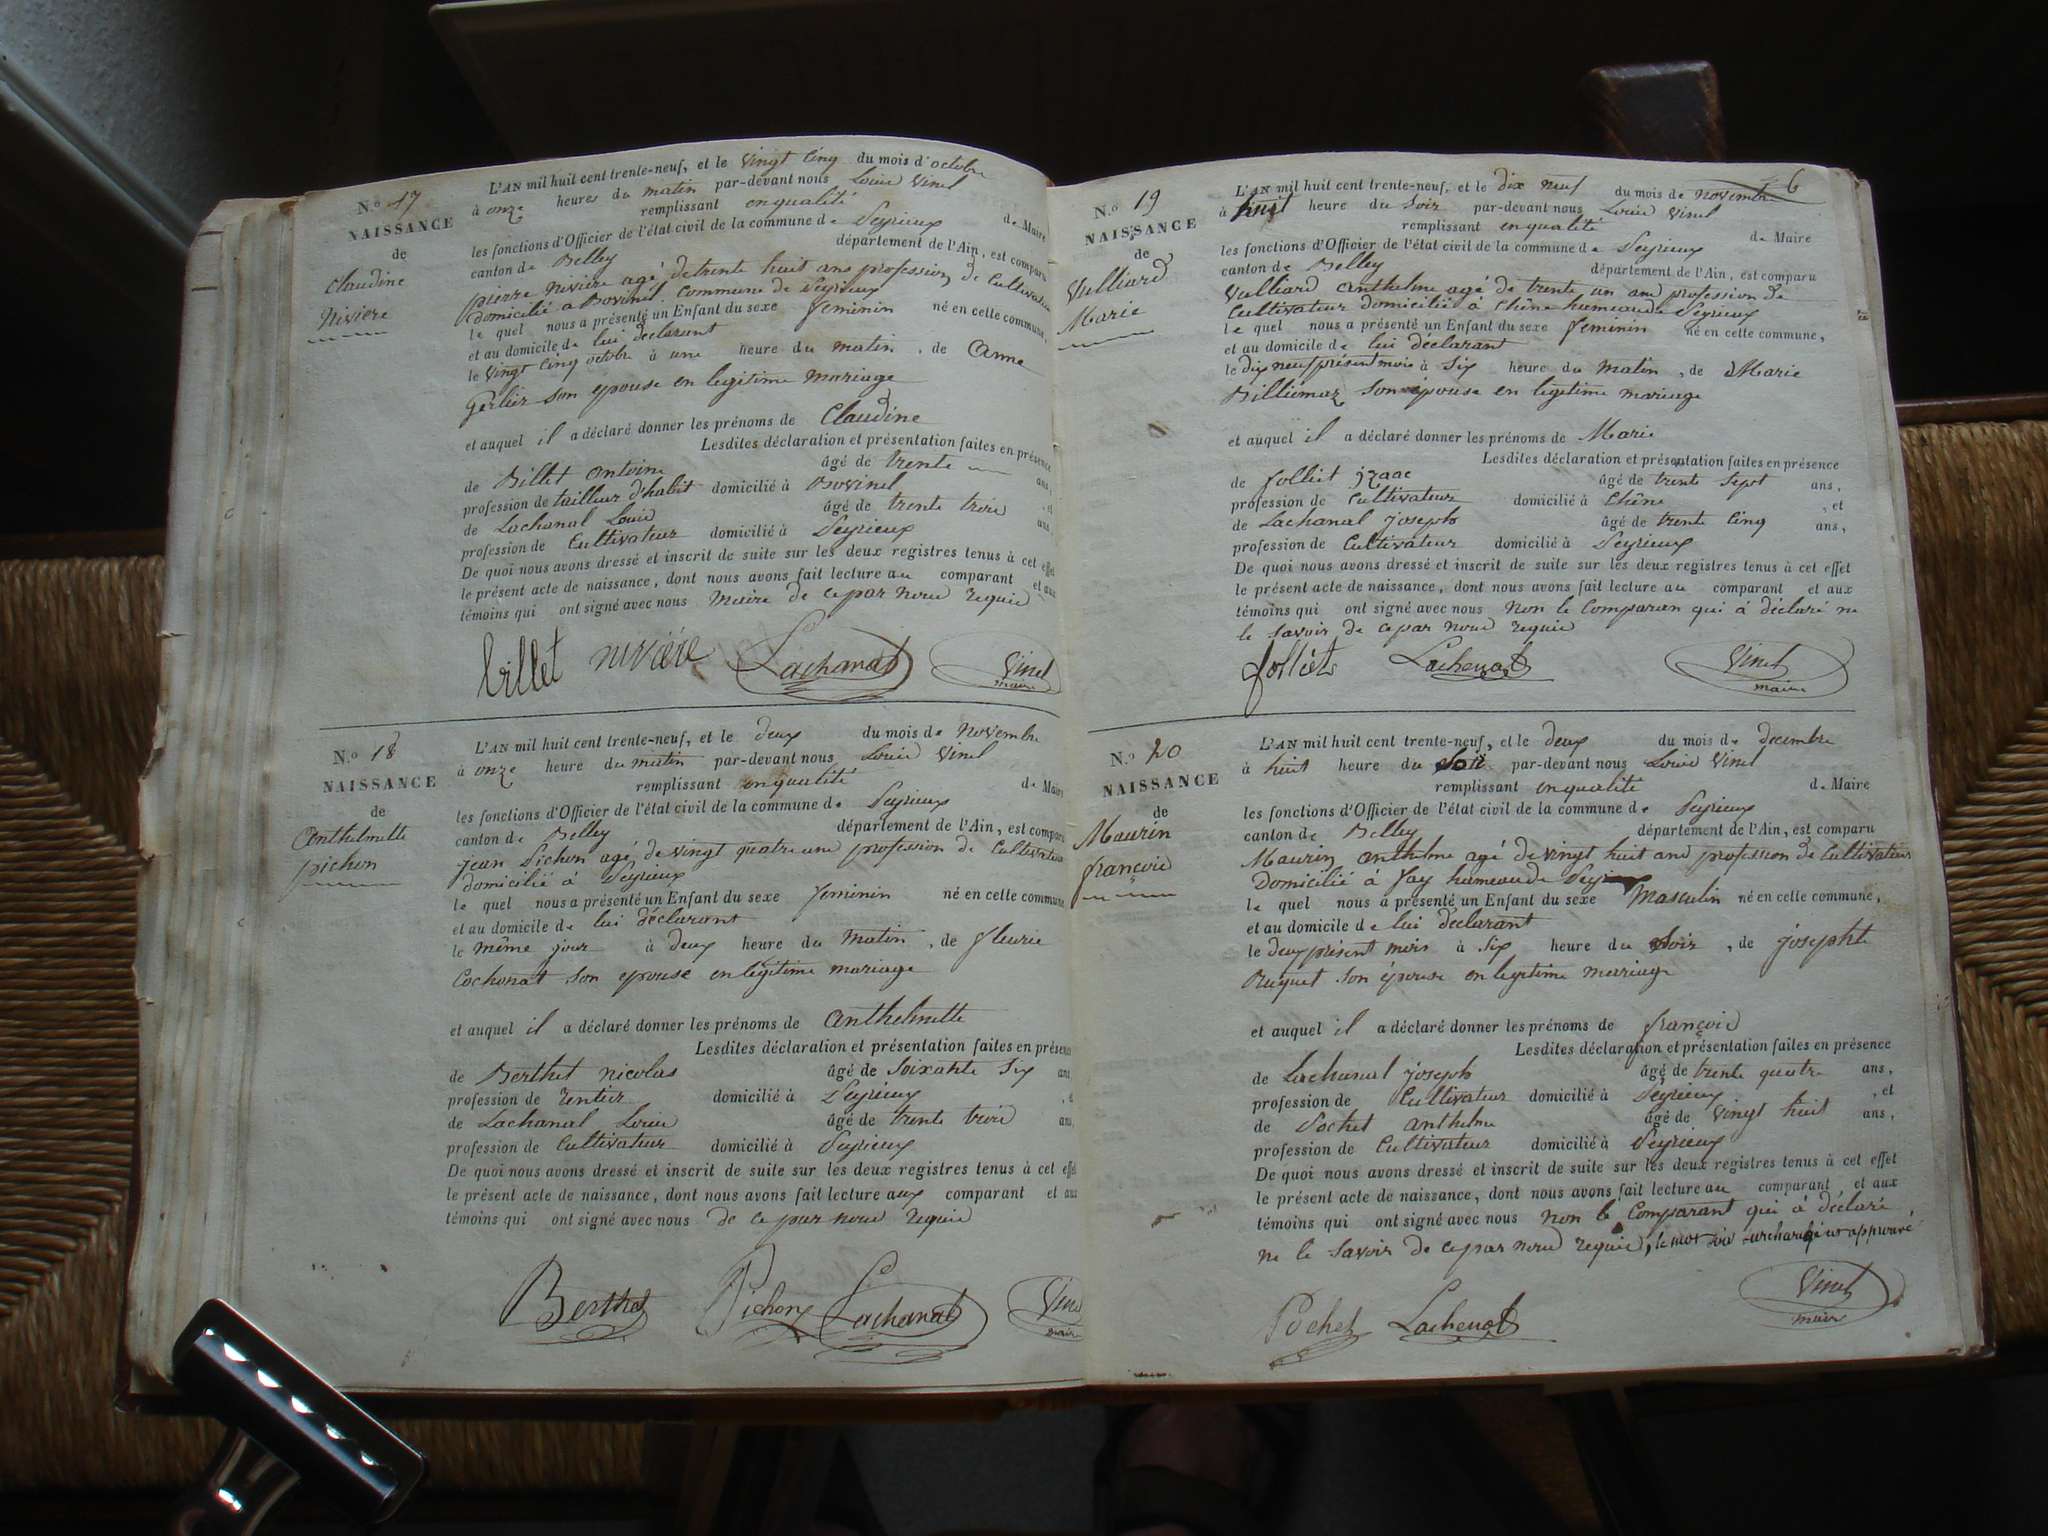 N.o 17
NAISSANCE
de
Claudine
Nivière
L'AN mil huit cent trente-neuf, et le vingt cinq du mois d'octobre
à onze heures du matin par-devant nous Louis Vinel
remplissant en qualité de Maire
les fonctions d'Officier de l'état civil de la commune de Peyrieux
canton de Belley département de l'Ain, est comparu
pierre nivière agé de trente huit ans profession de Cultivateur
domicilié a Bovinel commune de Peyrieux
le quel nous a présenté un Enfant du sexe feminin né en cette commune,
et au domicile de lui déclarant
le vingt cinq octobre à une heure du matin, de anne
Gerlier son epouse en legitime mariage
et auquel il a déclaré donner les prénoms de Claudine
Lesdites déclaration et présentation faites en présence
de Billet antoine âgé de trente ans,
profession de tailleur d'habit domicilié à Bovinel , et
de Lachanal Louis âgé de trente trois ans
profession de Cultivateur domicilié à Peyrieux
De quoi nous avons dressé et inscrit de suite sur les deux registres tenus à cet effet
le présent acte de naissance, dont nous avons fait lecture au comparant et aux
témoins qui ont signé avec nous maire de ce par nous requis
billet nivière Lachanal Vinel
maire
N.o 18
NAISSANCE
de
Anthelmette
pichon
L'AN mil huit cent trente-neuf, et le deux du mois de novembre
à onze heure du matin par-devant nous Louis Vinel
remplissant en qualité de Maire
les fonctions d'Officier de l'état civil de la commune de Peyrieux
canton de Belley département de l'Ain, est comparu
jean Pichon agé de vingt quatre ans profession de Cultivateur
domicilié à Peyrieux
le quel nous a présenté un Enfant du sexe feminin né en cette commune
et au domicile de lui déclarant
le même jour à deux heure du matin, de fleurie
Cochonat son epouse en legitime mariage
et auquel il a déclaré donner les prénoms de anthelmette
Lesdites déclaration et présentation faites en présence
de Berthet nicolas âgé de soixante six ans
profession de rentier domicilié à Peyrieux , et
de Lachanal Louis âgé de trente trois ans
profession de Cultivateur domicilié à Peyrieux
De quoi nous avons dressé et inscrit de suite sur les deux registres tenus à cet effet
le présent acte de naissance, dont nous avons fait lecture aux comparant et aux
témoins qui ont signé avec nous de ce par nous requis
Berthet Pichon Lachanal Vinel
maire
6
N.o 19
NAISSANCE
de
Vulliard
Marie
L'AN mil huit cent trente-neuf, et le dix neuf du mois de novembre
à huit heure du soir par-devant nous Louis Vinel
remplissant en qualité de Maire
les fonctions d'Officier de l'état civil de la commune de Peyrieux
canton de Belley département de l'Ain, est comparu
Vulliard anthelme agé de trente un ans profession de
Cultivateur domicilié à Chêne hameau de Peyrieux
le quel nous a présenté un Enfant du sexe feminin né en cette commune,
et au domicile de lui déclarant
le dix neuf présent mois à six heure du matin, de Marie
Billiemaz son épouse en legitime mariage
et auquel il a déclaré donner les prénoms de Marie
Lesdites déclaration et présentation faites en présence
de folliet jzaac âgé de trente sept ans,
profession de Cultivateur domicilié à Chêne , et
de Lachanal joseph âgé de trente cinq ans,
profession de Cultivateur domicilié à Peyrieux
De quoi nous avons dressé et inscrit de suite sur les deux registres tenus à cet effet
le présent acte de naissance, dont nous avons fait lecture au comparant et aux
témoins qui ont signé avec nous non le comparan qui à déclaré ne
le savoir de ce par nous requis
folliets Lachenal Vinel
maire
N.o 20
NAISSANCE
de
Maurin
françois
L'AN mil huit cent trente-neuf, et le deux du mois de decembre
à huit heure du soir par-devant nous Louis Vinel
remplissant en qualité de Maire
les fonctions d'Officier de l'état civil de la commune de Peyrieux
canton de Belley département de l'Ain, est comparu
Maurin anthelme agé de vingt huit ans profession de Cultivateur
Domicilié à fay hameau de
le quel nous a présenté un Enfant du sexe Masculin né en cette commune,
et au domicile de lui déclarant
le deux présent mois à six heure du soir, de josephte
Ruquet son épouse en legitime mariage
et auquel il a déclaré donner les prénoms de françois
Lesdites déclaration et présentation faites en présence
de Lachanal joseph âgé de trente quatre ans,
profession de Cultivateur domicilié à Peyrieux , et
de Pochet anthelme âgé de vingt huit ans,
profession de Cultivateur domicilié à Peyrieux
De quoi nous avons dressé et inscrit de suite sur les deux registres tenus à cet effet
le présent acte de naissance, dont nous avons fait lecture au comparant et aux
témoins qui ont signé avec nous non le comparant qui à déclaré
ne le savoir de ce par nous requis, le mot soir surchargé est approuvé
Pochet Lachenal Vinel
maire